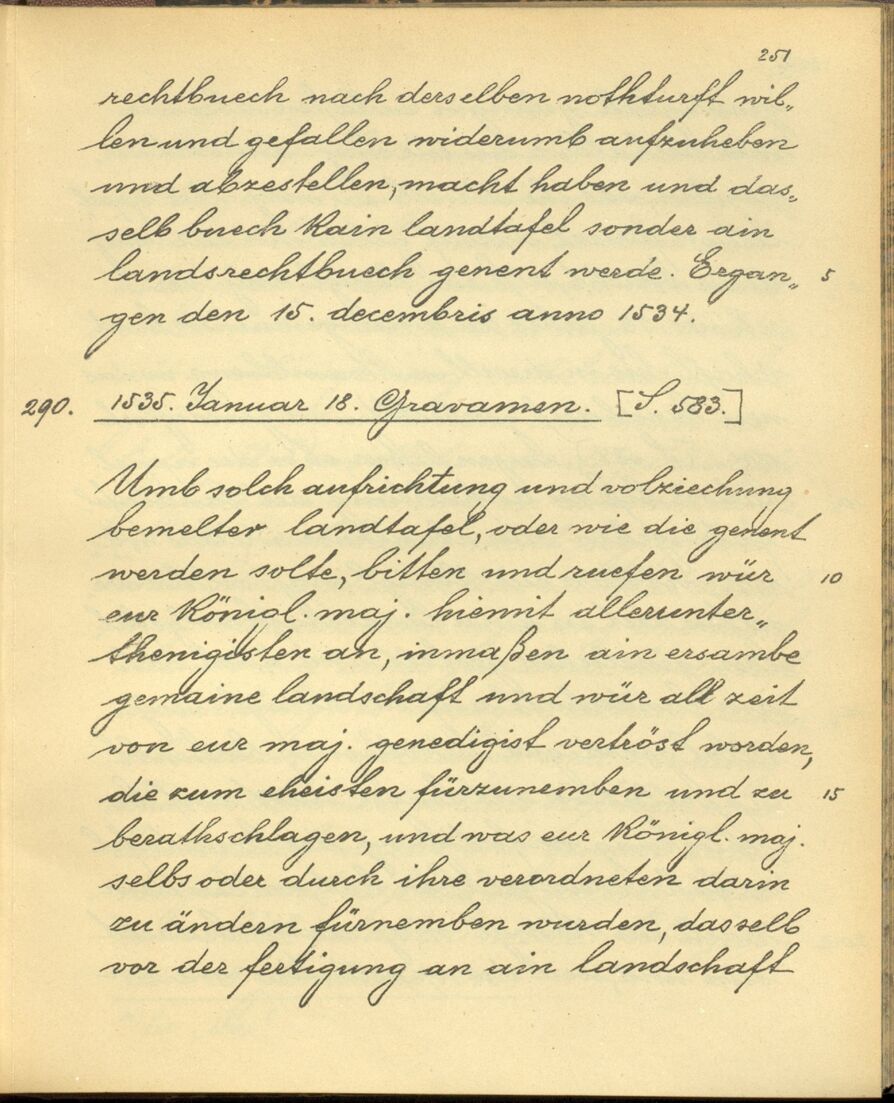 251
rechtbuech nach derselben nothturfft wil„
len und gefallen widerumb aufzuheben
und abzestellen, macht haben und das„
selb buech kain landtafel sonder ain
landsrechtbuech genent werde. Ergan„ 5
gen den 15. decembris anno 1534.
290. 1535. Januar 18. Gravamen. [S. 583.]
Umb solch aufrichtung und volziechung
bemelter landtafel, oder wie die genent
werden solte, bitten und ruefen wür 10
eur königl. maj. hiemit allerunter„
thenigisten an, inmaßen ain ersambe
gemaine landschaft und wür all zeit
von eur maj. genedigist vertröst worden,
die zum eheisten fürzunemben und zu 15
berathschlagen, und was eur königl. maj.
selbs oder durch ihre verordneten darin
zu ändern fürnemben wurden, dasselb
vor der fertigung an ain landschaft